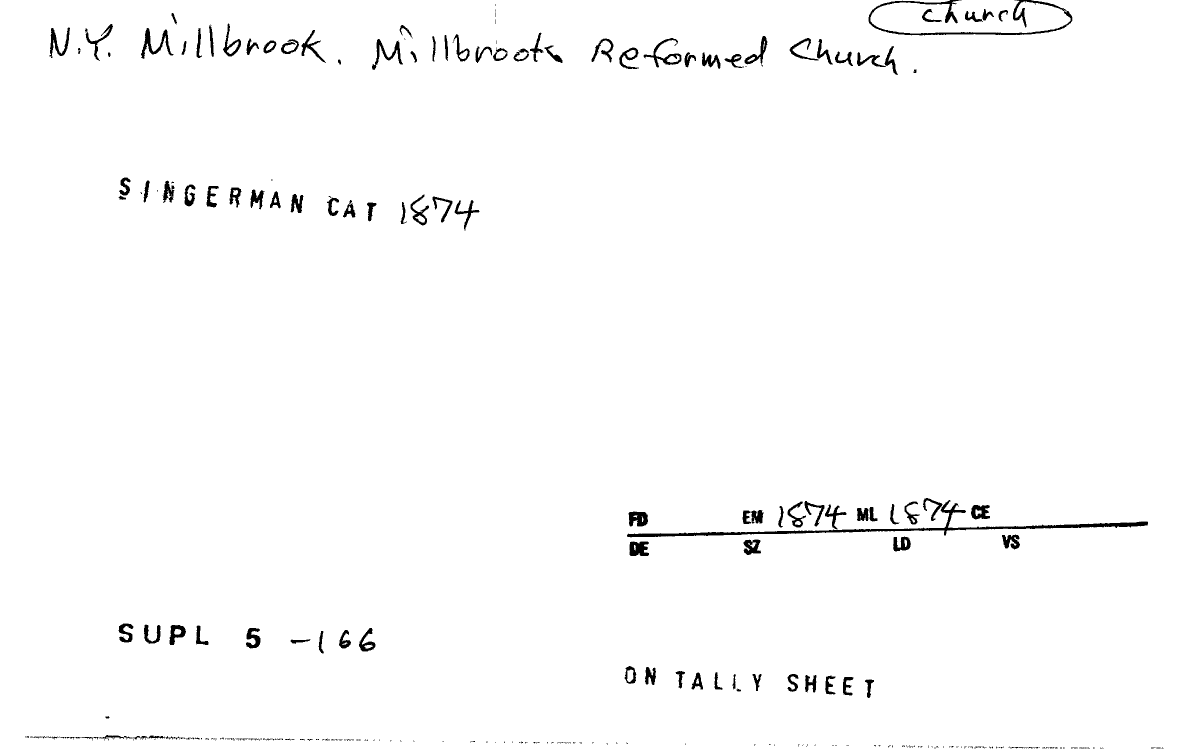 church
N.Y. Millbrook. Millbrook Reformed Church.
SINGERMAN CAT 1874
FD EM 1874 ML 1874 CE
DE SZ LD VS
SUPL 5 -166
ON TALLY SHEET